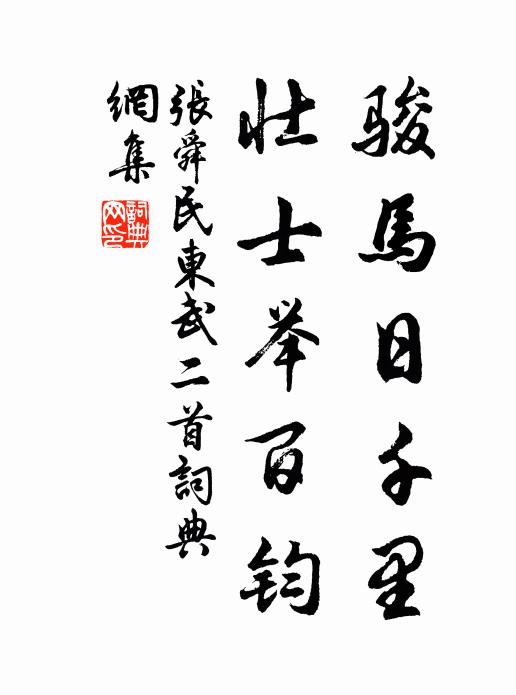 骏馬日千里
壮士举百钧
張舜民東武二首詞典
網集
詞典
网印